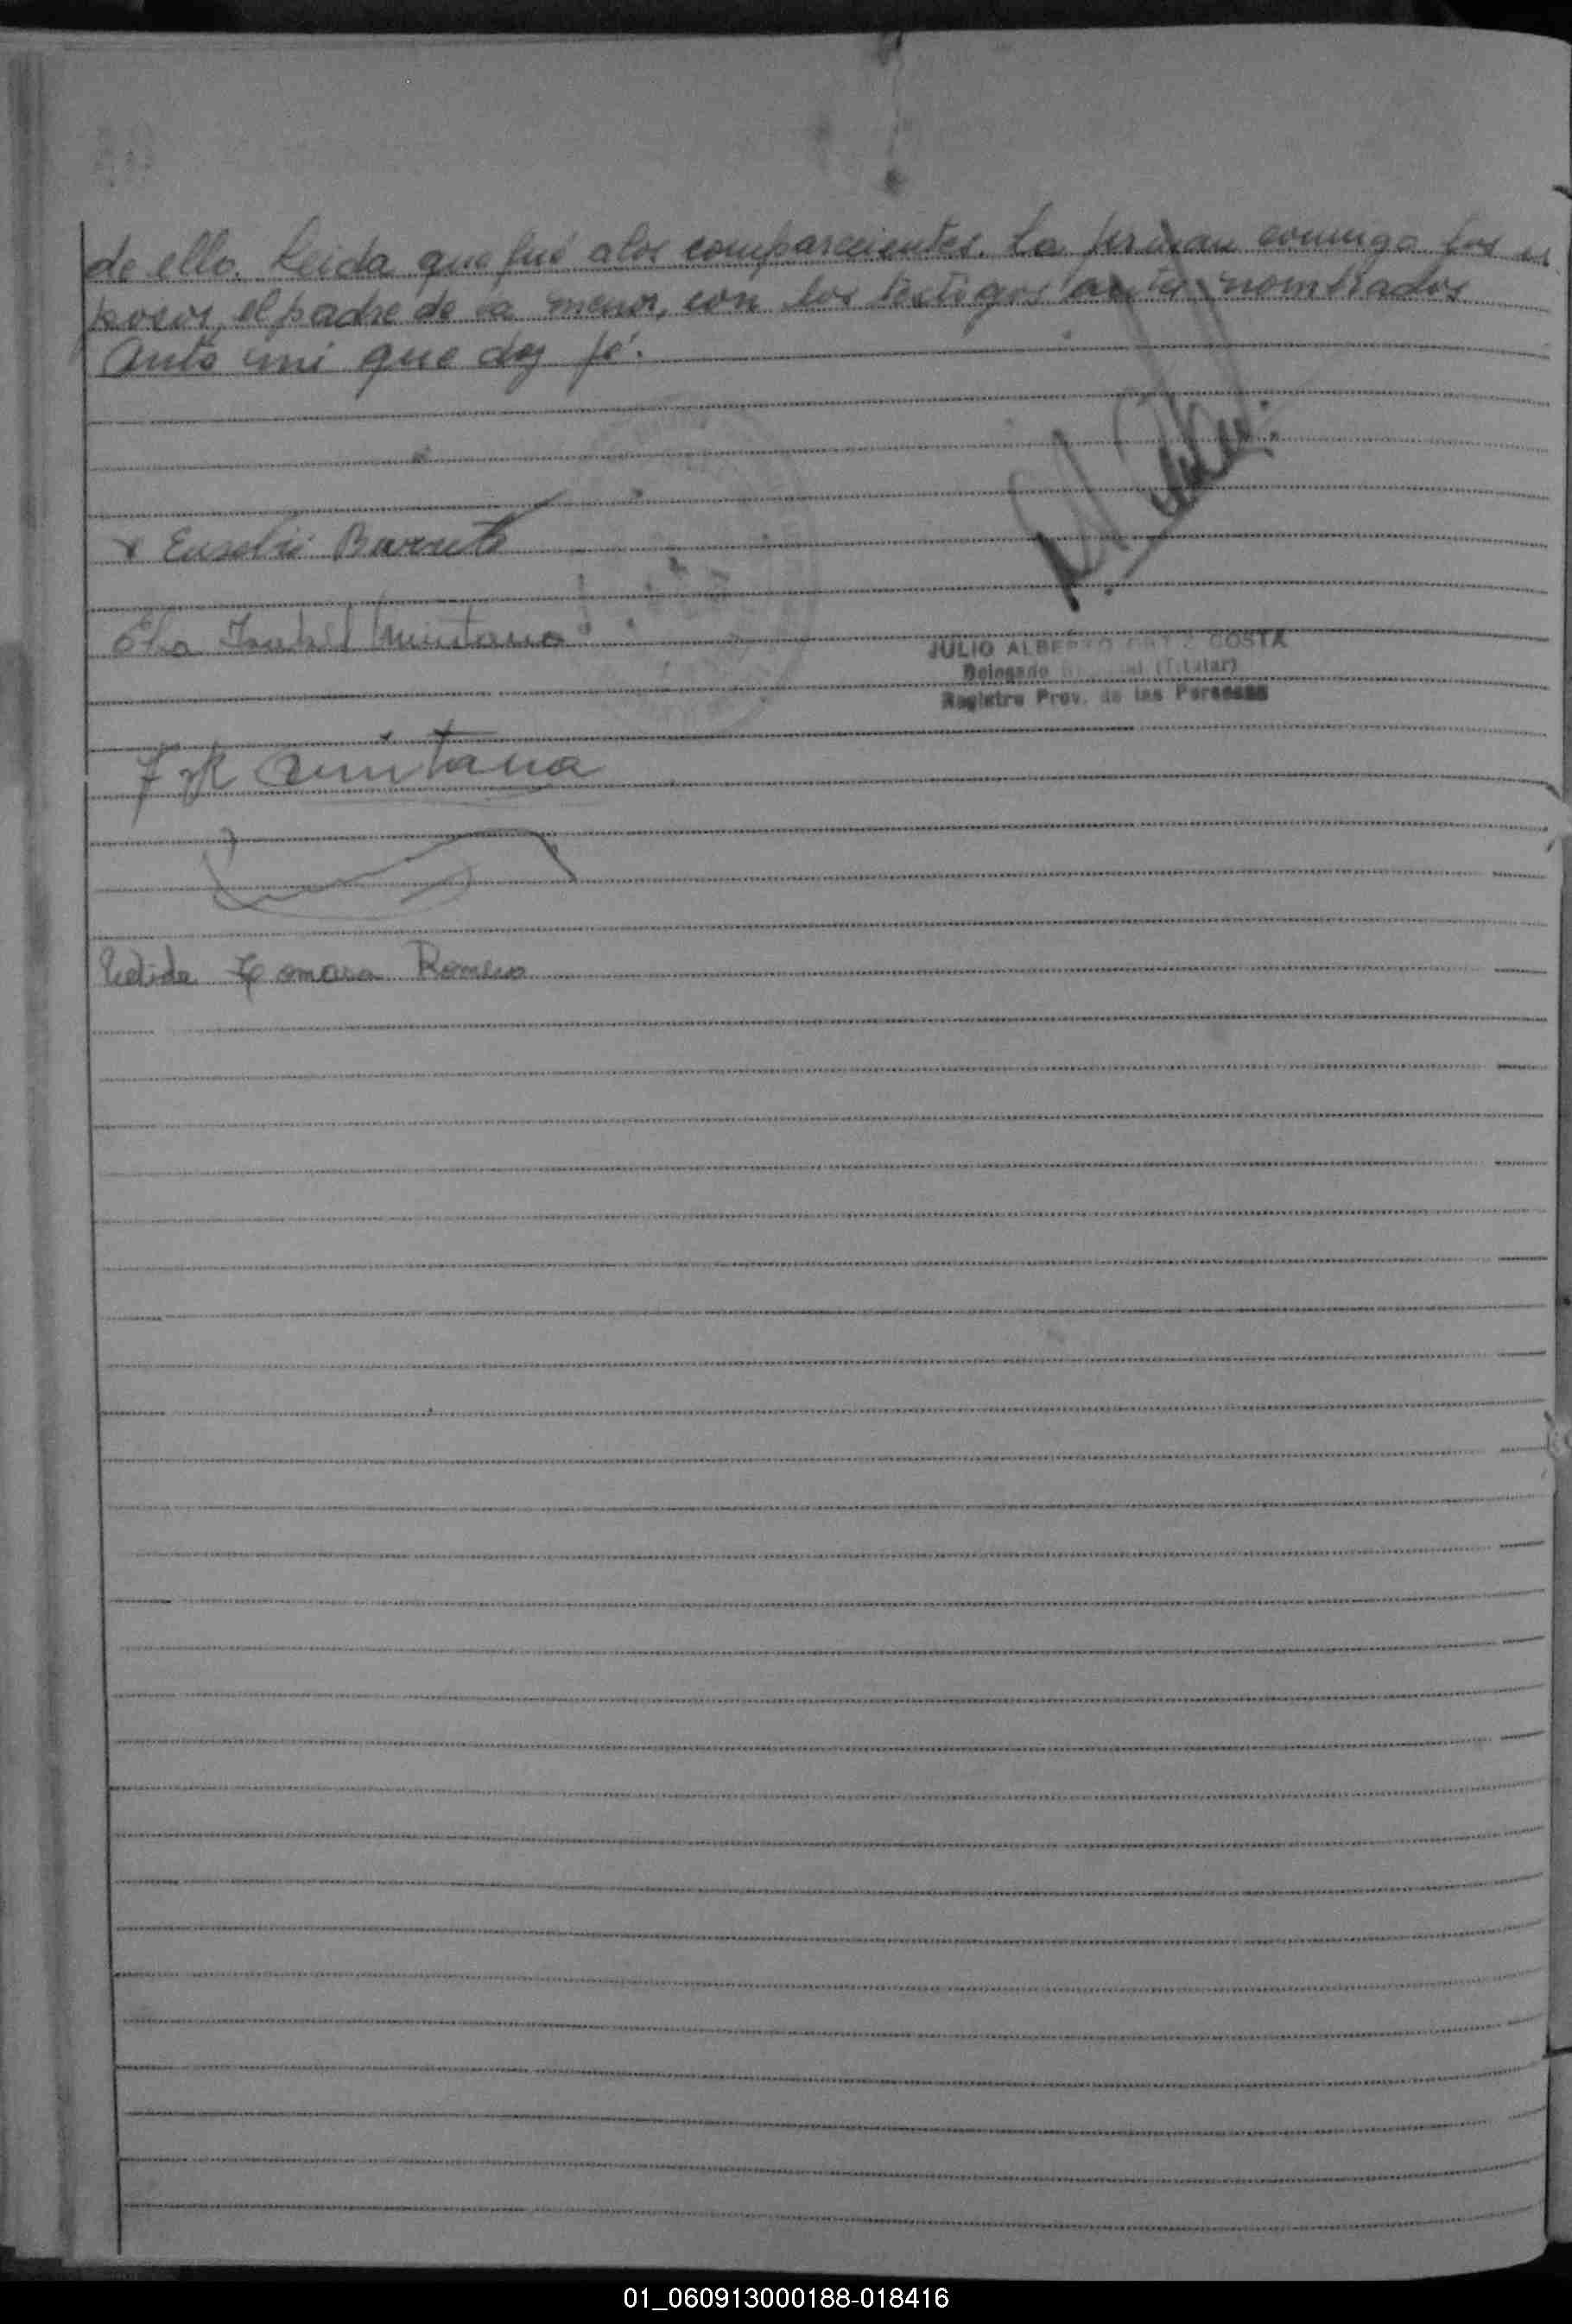 de ello. Leida que fué a los comparecientes. La firman conmigo los es
posos, el padre de la menor, con los testigos ante nombrados
Ante mi que doy fé.
Eusebio Barreto
Elsa Isabel Quintana
JULIO ALBERTO ORTIZ COSTA
Delegado (Titular)
Registro Prov. de las Personas
Quintana
Tomasa Romero
01_060913000188-018416